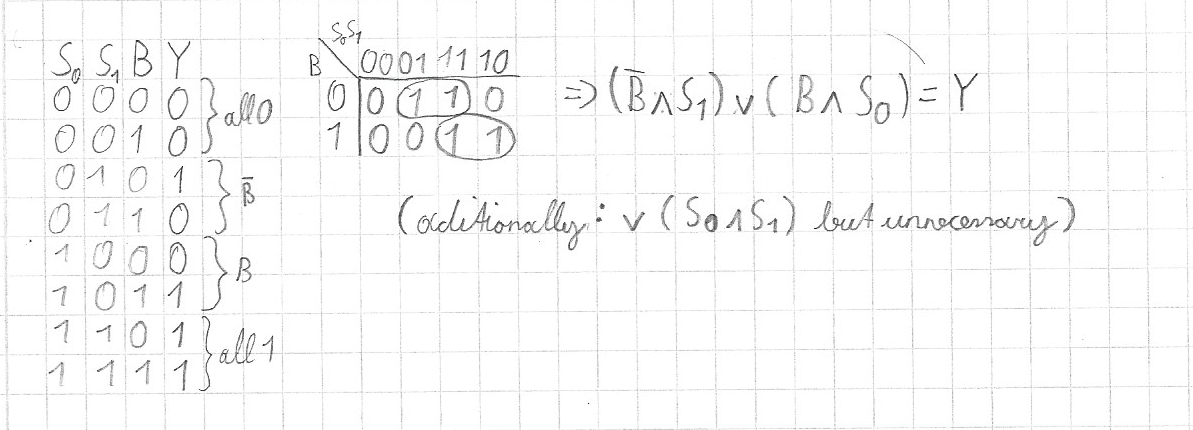 S₀ S₁ B Y
0 0 0 0
0 0 1 0
} all 0
0 1 0 1
0 1 1 0
} B̅
1 0 0 0
1 0 1 1
} B
1 1 0 1
1 1 1 1
} all 1
S₀S₁
B 00 01 11 10
0 0 1 1 0
1 0 0 1 1
=> (B̅ ∧ S₁) ∨ (B ∧ S₀) = Y
(aditionally: ∨ (S₀ ∧ S₁) but unnecessary)